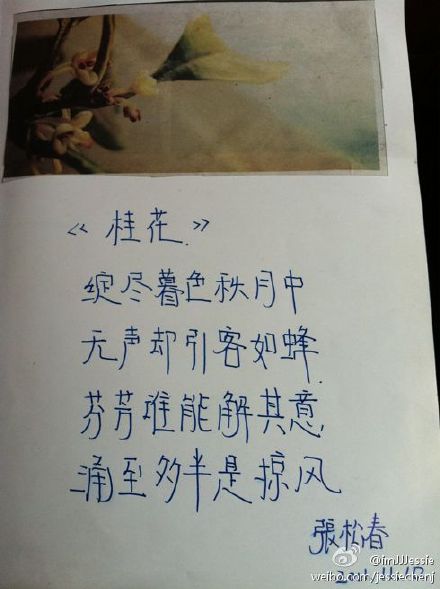 《桂花》
绽尽暮色秋月中
无声却引客如蜂
芬芳谁能解其意
涌至多半是掠风
張松春
weibo.com/jessiechenj